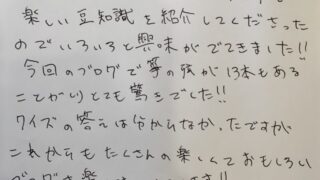 楽しい豆知識を紹介してくださった
のでいろいろと興味がでてきました!!
今回のブログで箏の弦が13本もある
ことがわりとても驚きでした!!
クイズの答えは分からなかったですが
これからもたくさんの楽しくておもしろい
ブログを楽